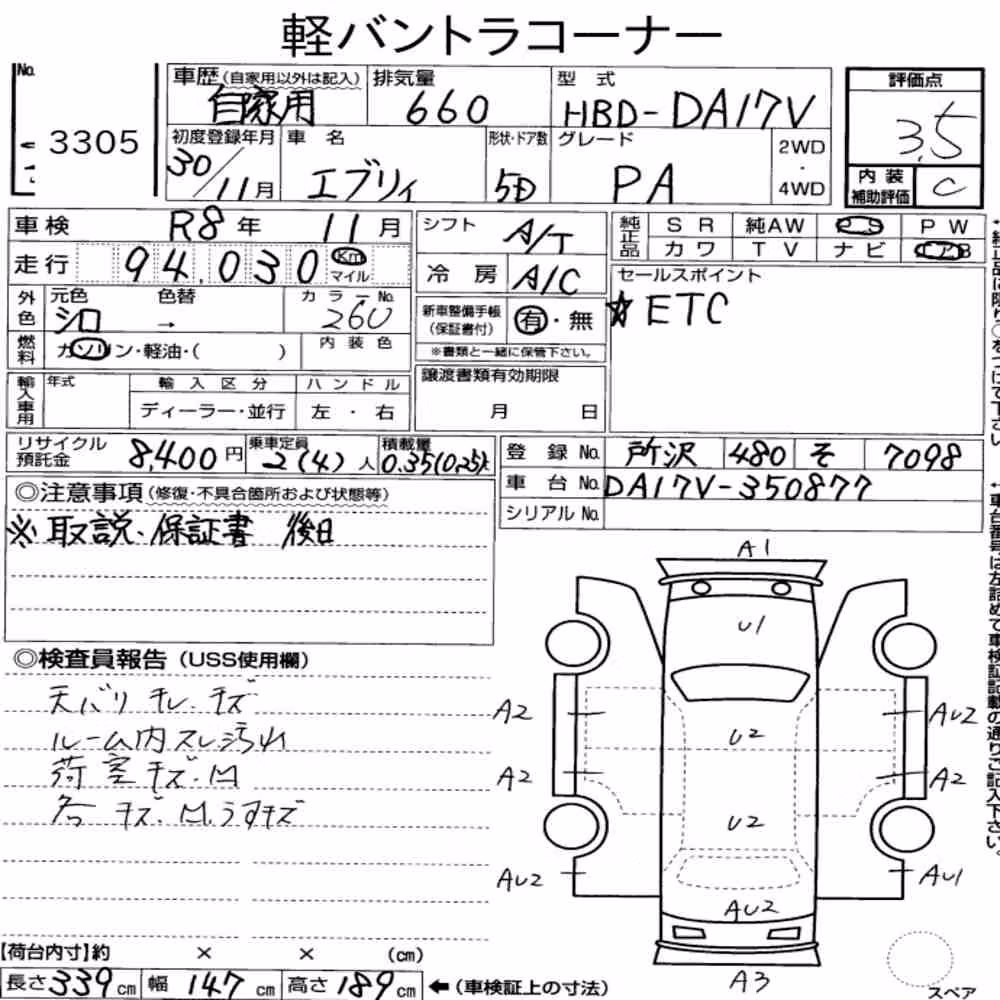 軽バントラコーナー
No. 3305
車歴(自家用以外は記入) 自家用
排気量 660
型式 HBD-DA17V
評価点 3.5
初度登録年月 30/11月
車名 エブリィ
形状・ドア数 5D
グレード PA
2WD・4WD
内装補助評価 C
車検 R8年 11月
走行 94,030 Km マイル
シフト A/T
冷房 A/C
純正品 SR 純AW PS PW
カワ TV ナビ エアB
セールスポイント
☆ETC
外色 元色 シロ 色替 → カラーNo. 26U
内装色
燃料 ガソリン・軽油・( )
新車整備手帳(保証書付) 有・無
※書類と一緒に保管下さい。
輸入車用 年式 輸入区分 ハンドル
ディーラー・並行 左・右
譲渡書類有効期限
月 日
リサイクル預託金 8,400円
乗車定員 2(4)人
積載量 0.35(0.25)t
登録No. 所沢 480 そ 7098
車台No. DA17V-350877
シリアルNo.
◎注意事項(修復・不具合箇所および状態等)
※取説・保証書 後日
◎検査員報告(USS使用欄)
天バリ キレ・キズ
ルーム内スレ汚れ
荷室キズ・M
各 キズ・M,うすキズ
A1
U1
A2
AU2
U2
A2
A2
U2
AU2
AU1
AU2
A3
スペア
【荷台内寸】約 × × (cm)
長さ 339cm 幅 147cm 高さ 189cm ←(車検証上の寸法)
↑純正品に限り○をつけて下さい
↑車台番号は左詰めで車検証記載の通りご記入下さい。